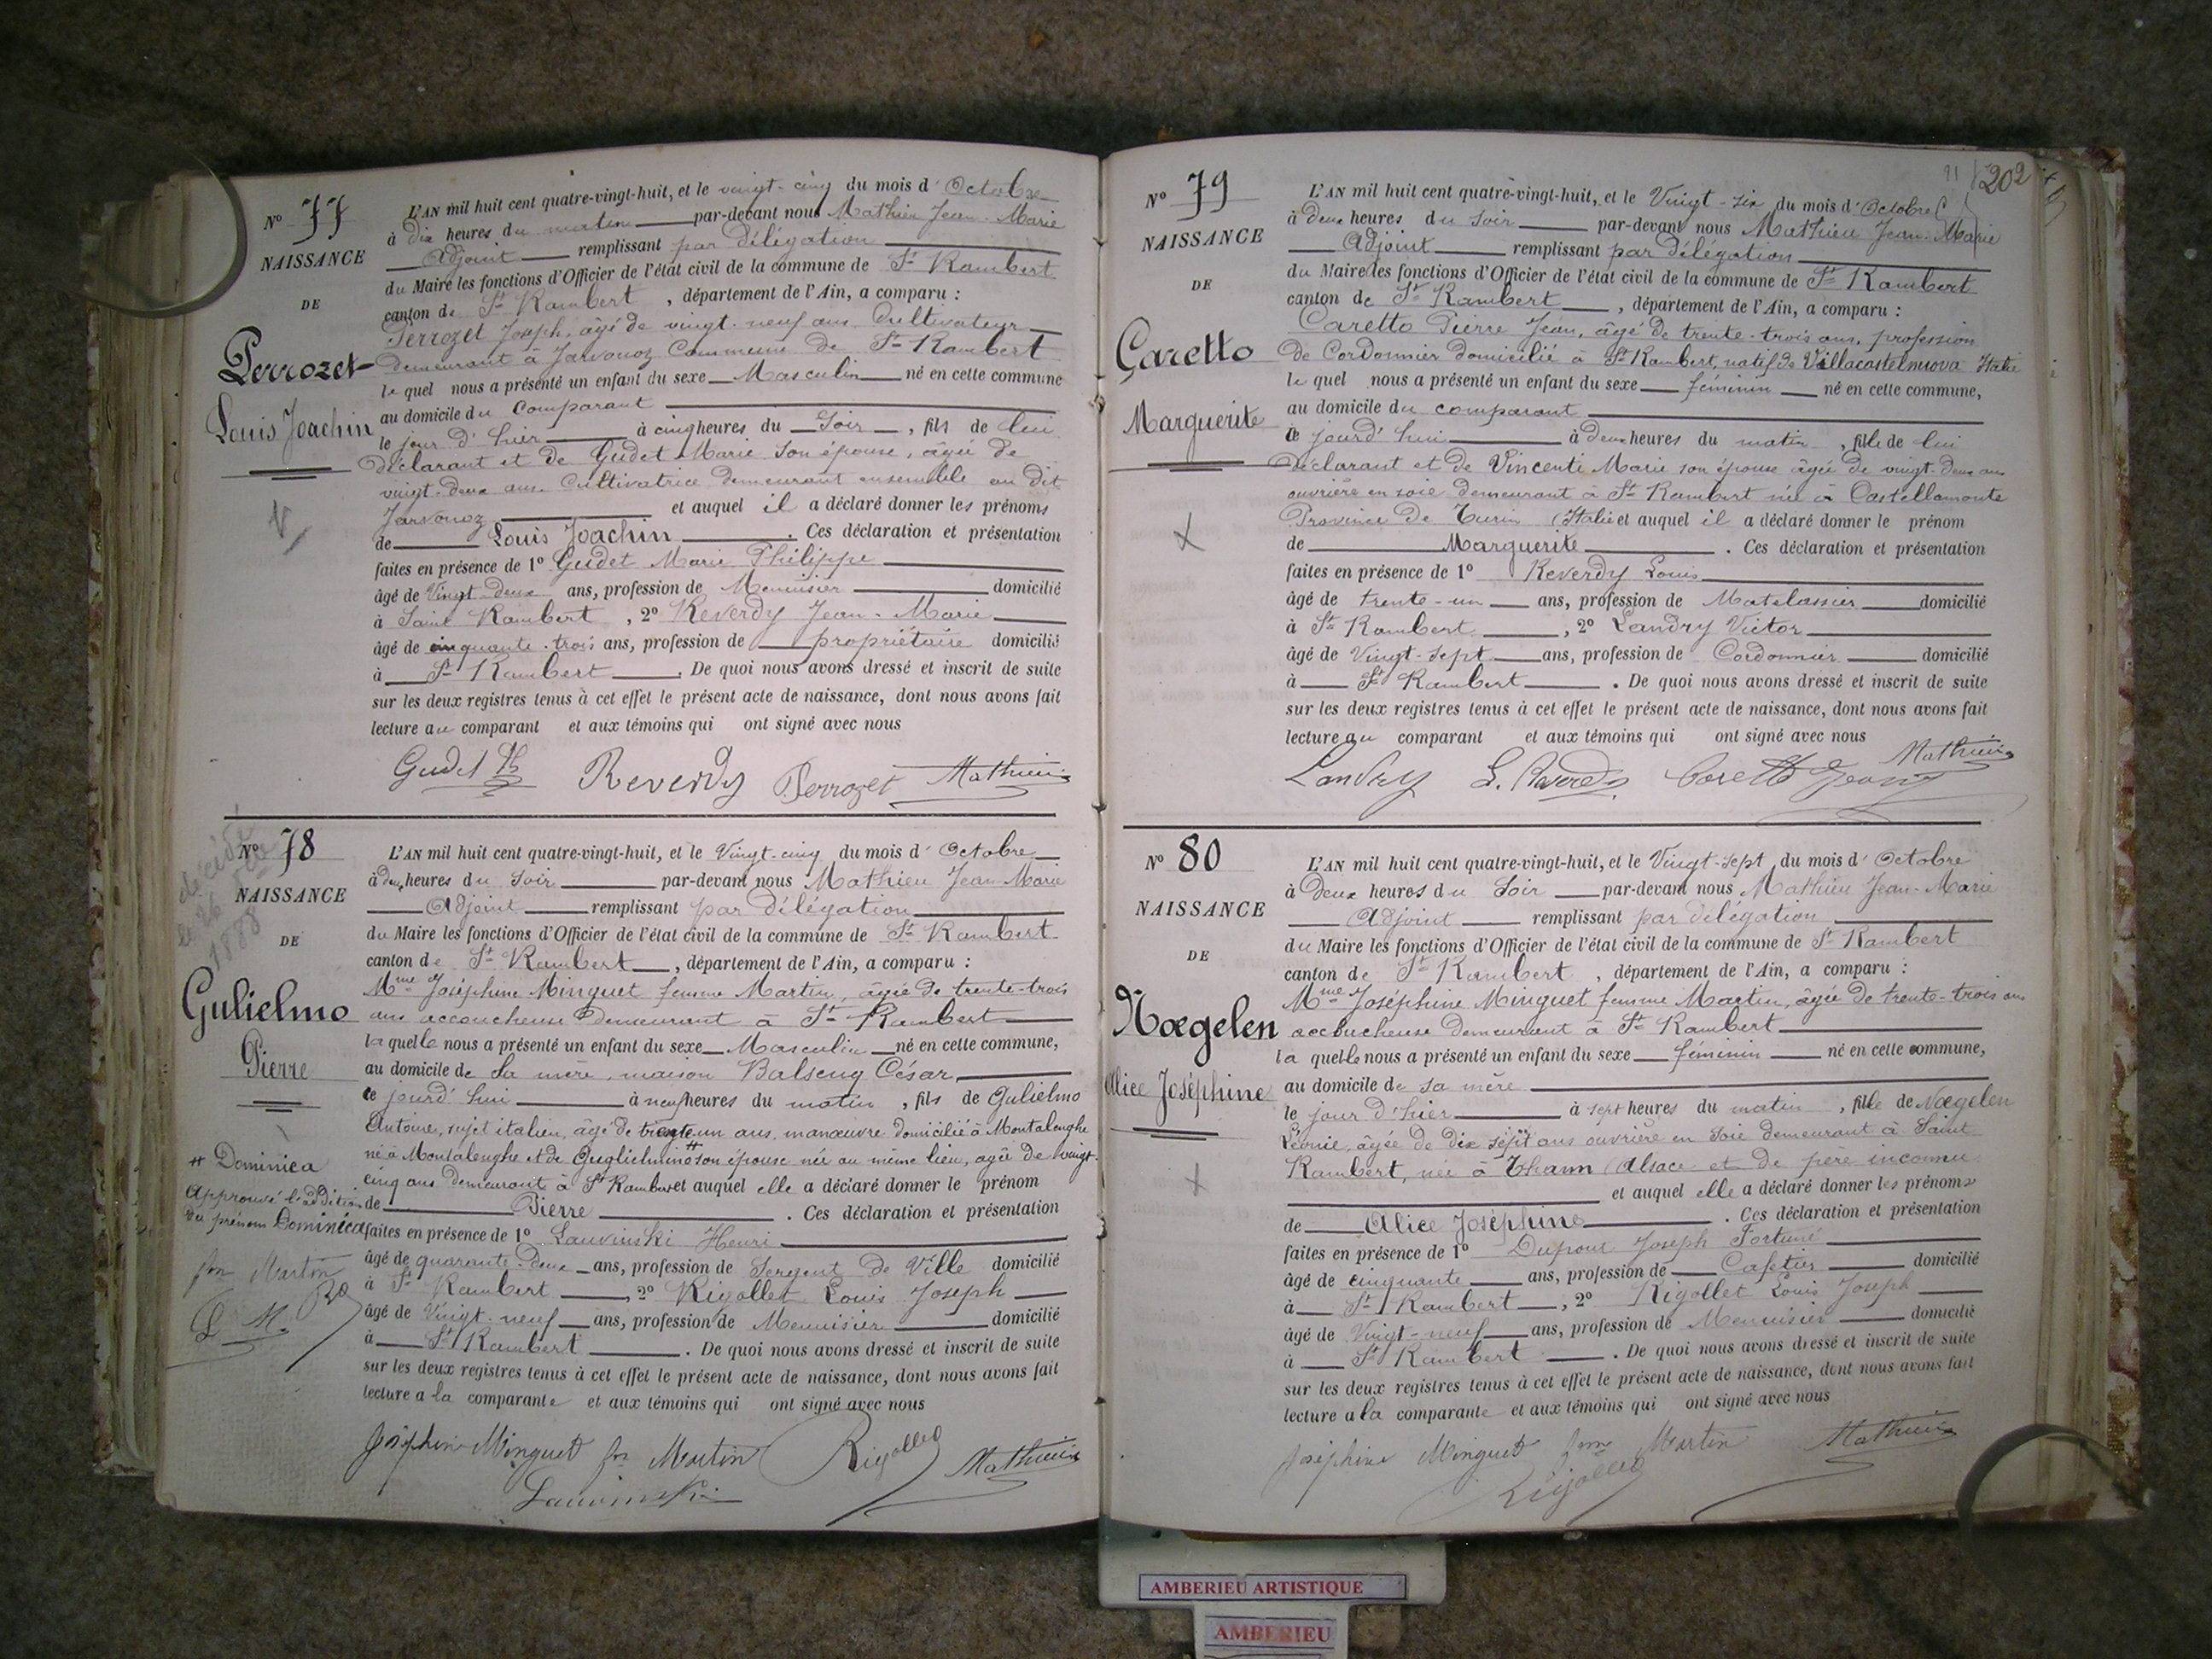 N° 77
NAISSANCE
DE
Perrozet
Louis Joachin
L'AN mil huit cent quatre-vingt-huit, et le vingt-cinq du mois d'Octobre
à dix heures du matin par-devant nous Mathieu Jean-Marie
Adjoint remplissant par délégation
du Maire les fonctions d'Officier de l'état civil de la commune de St Rambert
canton de St Rambert, département de l'Ain, a comparu :
Perrozet Joseph, âgé de vingt-neuf ans Cultivateur
demeurant à Javornoz Commune de St Rambert
le quel nous a présenté un enfant du sexe Masculin né en cette commune
au domicile du Comparant
le jour d'hier à cinq heures du Soir, fils de lui
déclarant et de Gudet Marie son épouse, âgée de
vingt-deux ans Cultivatrice demeurant ensemble au dit
et auquel il a déclaré donner les prénoms
de Louis Joachin. Ces déclaration et présentation
faites en présence de 1° Gudet Marie Philippe
âgé de Vingt-deux ans, profession de Menuisier domicilié
à Saint Rambert, 2° Reverdy Jean-Marie
âgé de cinquante-trois ans, profession de propriétaire domicilié
à St Rambert. De quoi nous avons dressé et inscrit de suite
sur les deux registres tenus à cet effet le présent acte de naissance, dont nous avons fait
lecture au comparant et aux témoins qui ont signé avec nous
Gudet Reverdy Perrozet Mathieu
N° 78
NAISSANCE
DE
Gulielmo
Pierre
décédé
le 26
1888
L'AN mil huit cent quatre-vingt-huit, et le Vingt-cinq du mois d'Octobre
à deux heures du Soir par-devant nous Mathieu Jean-Marie
Adjoint remplissant par délégation
du Maire les fonctions d'Officier de l'état civil de la commune de St Rambert
canton de St Rambert, département de l'Ain, a comparu :
Mme Joséphine Minguet femme Martin, âgée de trente-trois
ans accoucheuse demeurant à St Rambert
la quelle nous a présenté un enfant du sexe Masculin né en cette commune,
au domicile de la mère, maison César
ce jourd'hui à neuf heures du matin, fils de Gulielmo
Antoine, sujet italien, âgé de trente un ans, manœuvre domicilié à Montalenghe
né à Montalenghe et de Guglielmino # son épouse née au même lieu, âgée de vingt-
cinq ans demeurant à St Rambert et auquel elle a déclaré donner le prénom
de Pierre. Ces déclaration et présentation
faites en présence de 1° Lauvinski Henri
âgé de quarante-deux ans, profession de Sergent de Ville domicilié
à St Rambert, 2° Rigollet Louis Joseph
âgé de Vingt-neuf ans, profession de Menuisier domicilié
à St Rambert. De quoi nous avons dressé et inscrit de suite
sur les deux registres tenus à cet effet le présent acte de naissance, dont nous avons fait
lecture a la comparante et aux témoins qui ont signé avec nous
# Dominica
Approuvé l'addition
du prénom Dominica
fm Martin
Joséphine Minguet fm Martin Rigollet Mathieu
Lauvinski
202
N° 79
NAISSANCE
DE
Caretto
Marguerite
L'AN mil huit cent quatre-vingt-huit, et le Vingt-six du mois d'Octobre
à deux heures du Soir par-devant nous Mathieu Jean-Marie
Adjoint remplissant par délégation
du Maire les fonctions d'Officier de l'état civil de la commune de St Rambert
canton de St Rambert, département de l'Ain, a comparu :
Caretto Pierre Jean, âgé de trente-trois ans, profession
de Cordonnier domicilié à St Rambert, natif de Villacastelnuova Italie
le quel nous a présenté un enfant du sexe féminin né en cette commune,
au domicile du comparant
ce jourd'hui à deux heures du matin, fille de lui
déclarant et de Vincenti Marie son épouse âgée de vingt-deux ans
ouvrière en soie demeurant à St Rambert née à Castellamonte
Province de Turin (Italie et auquel il a déclaré donner le prénom
de Marguerite. Ces déclaration et présentation
faites en présence de 1° Reverdy Louis
âgé de trente-un ans, profession de Matelassier domicilié
à St Rambert, 2° Landry Victor
âgé de Vingt-sept ans, profession de Cordonnier domicilié
à St Rambert. De quoi nous avons dressé et inscrit de suite
sur les deux registres tenus à cet effet le présent acte de naissance, dont nous avons fait
lecture au comparant et aux témoins qui ont signé avec nous
Landry L. Reverdy Caretto Jean Mathieu
N° 80
NAISSANCE
DE
Nœgelen
Alice Joséphine
L'AN mil huit cent quatre-vingt-huit, et le Vingt-sept du mois d'Octobre
à deux heures du Soir par-devant nous Mathieu Jean-Marie
Adjoint remplissant par délégation
du Maire les fonctions d'Officier de l'état civil de la commune de St Rambert
canton de St Rambert, département de l'Ain, a comparu :
Mme Joséphine Minguet femme Martin, âgée de trente-trois ans
accoucheuse demeurant à St Rambert
la quelle nous a présenté un enfant du sexe féminin né en cette commune,
au domicile de sa mère
le jour d'hier à sept heures du matin, fille de Nœgelen
Léonie, âgée de dix sept ans ouvrière en soie demeurant à Saint
Rambert, née à Thann (Alsace et de père inconnu
et auquel elle a déclaré donner les prénoms
de Alice Joséphine. Ces déclaration et présentation
faites en présence de 1° Dupont Joseph Fortuné
âgé de cinquante ans, profession de Cafetier domicilié
à St Rambert, 2° Rigollet Louis Joseph
âgé de Vingt-neuf ans, profession de Menuisier domicilié
à St Rambert. De quoi nous avons dressé et inscrit de suite
sur les deux registres tenus à cet effet le présent acte de naissance, dont nous avons fait
lecture a la comparante et aux témoins qui ont signé avec nous
Joséphine Minguet fme Martin Mathieu
Rigollet
AMBERIEU ARTISTIQUE
AMBERIEU